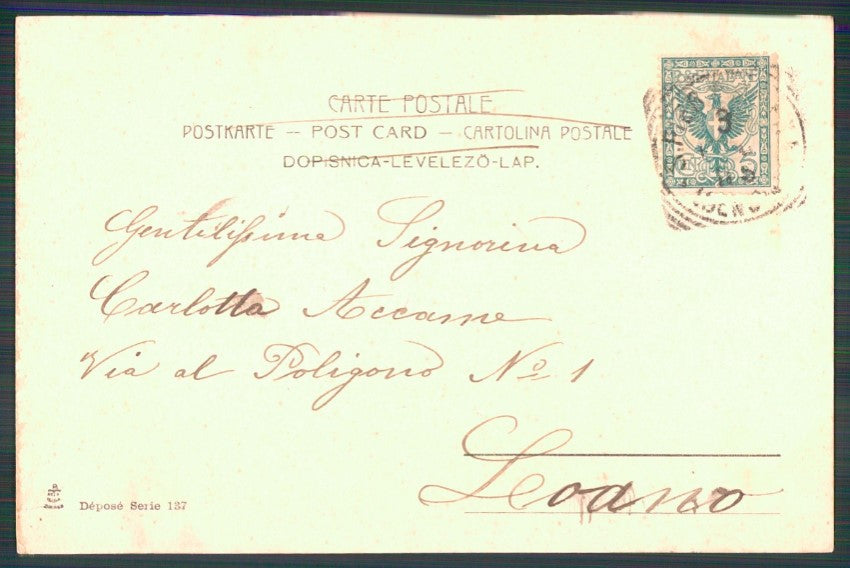 CARTE POSTALE
POSTKARTE -- POST CARD -- CARTOLINA POSTALE
DOPISNICA-LEVELEZŐ-LAP.
Gentilissima Signorina
Carlotta Accame
Via al Poligono No 1
Loano
Déposé Serie 137